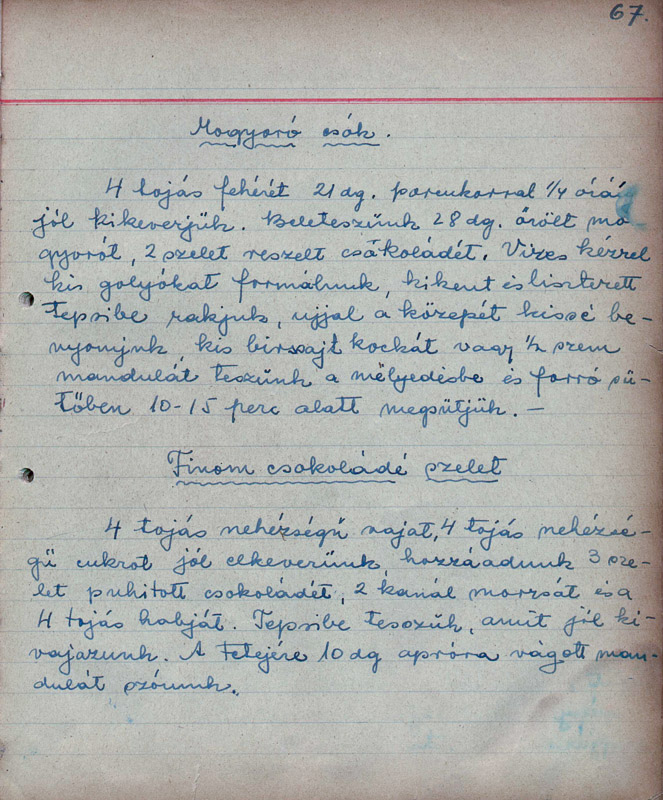 67.
Mogyoró csók.
4 tojás fehérét 21 dg. porcukorral 1/4 órái
jól kikeverjük. Beleteszünk 28 dg. őrölt mo
gyorót, 2 szelet reszelt csákoládét. Vizes kézzel
kis golyókat formálunk, kikent és lisztezett
tepsibe rakjuk, ujjal a közepét kissé be-
nyomjuk, kis birssajt kockát vagy 1/2 szem
mandulát teszünk a mélyedésbe és forró sü-
tőben 10-15 perc alatt megsütjük. —
Finom csokoládé szelet
4 tojás nehézségű vajat, 4 tojás nehézsé-
gű cukrot jól elkeverünk, hozzáadunk 3 sze-
let puhitott csokoládét, 2 kanál morzsát és a
4 tojás habját. Tepsibe tesszük, amit jól ki-
vajazunk. A tetejére 10 dg apróra vágott man-
dulát szórunk.